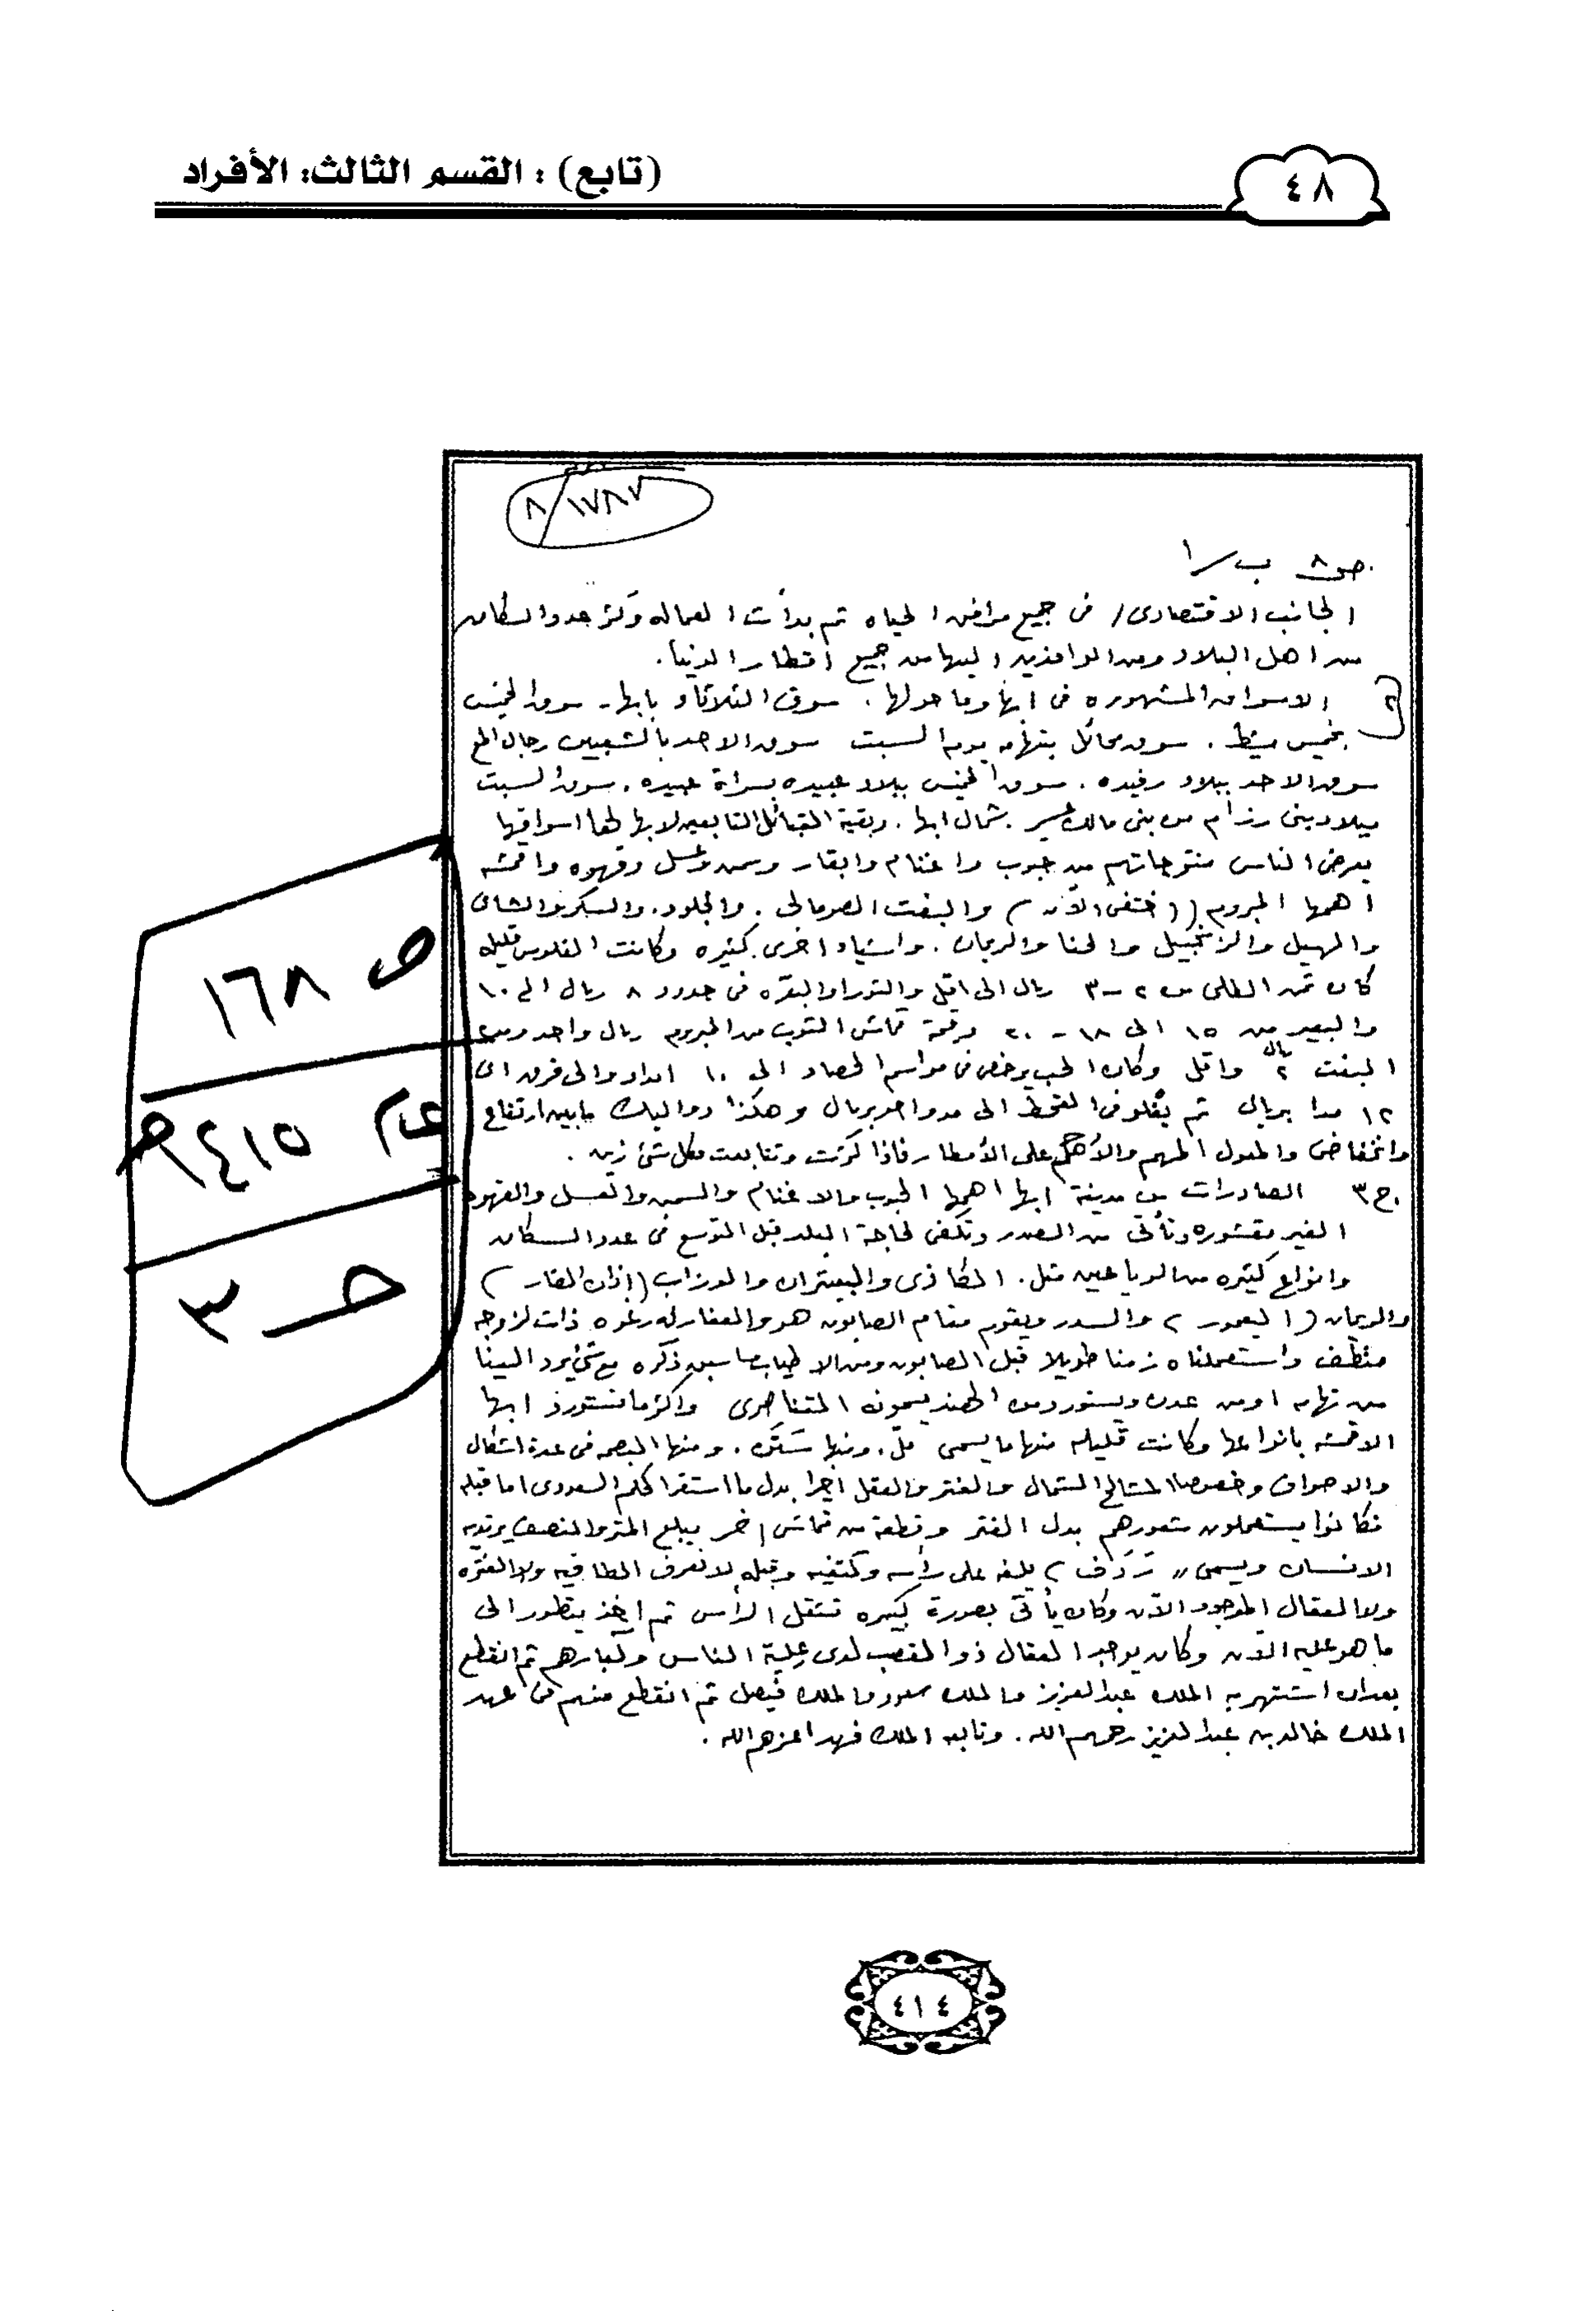 ٤٨
(تابع) : القسم الثالث: الأفراد
٨/١٧٨٧
ص٨ ب/١
الجانب الاقتصادى/ فى جميع مرافق الحياه ثم بدأت العماله وكثر عدد السكان
من اهل البلاد ومن الوافدين اليها من جميع اقطار الدنيا.
ج٢ الاسواق المشهوره فى ابها وما حولها . سوق الثلاثاء بابها - سوق الخميس
بخميس مشيط . سوق محائل بتهامه يوم السبت سوق الاحد بالشعبين رجال المع
سوق الاحد ببلاد رفيده . سوق الخميس ببلاد عبيده بسراة عبيده . سوق السبت
ببلاد بنى رزام من بنى مالك عسير . شمال ابها . وبقية القبائل التابعين لابها لها اسواقها
يعرض الناس منتوجاتهم من حبوب واغنام وابقار وسمن وعسل وقهوه واقمشه
اهمها المبروم (اختفى الآن) والبفت الصومالى . والجلود . والسكر والشاى
والهيل والزنجبيل والحنا والريحان . واشياء اخرى كثيره وكانت الفلوس قليله
كان ثمن الطلى من ٢ - ٣ ريال الى اقل والثور والبقره فى حدود ٨ ريال الى ١٠
والبعير من ١٥ الى ١٨ - ٢٠ وقيمة قماش الثوب من المبروم ريال واحد ومن
البفت ٢ ريال واقل وكان الحب يرخص فى مواسم الحصاد الى ١٠ امداد والى فرق اى
١٢ مدا بريال ثم يغلو فى القحط الى مد واحد بريال وهكذا دواليك ما بين ارتفاع
وانخفاض والمعول المهم والأهم على الأمطار فاذا كثرت وتتابعت فكل شئ زين .
ج٣ الصادرات من مدينة ابها اهمها الحبوب والاغنام والسمن والعسل والقهوه
الغير مقشوره وتأتى من الصدر وتكفى لحاجة البلد قبل التوسع فى عدد السكان
وانواع كثيره من الرياحين مثل . الكاذى والبعيثران والوزاب (اذان الفار)
والريحان (اليعمور) والسدر ويقوم مقام الصابون هو والعفار له رغوه ذات لزوجه
منظف واستعملناه زمنا طويلا قبل الصابون ومن الاطياب ما سبق ذكره مع شئ يرد الينا
من تهامه او من عدن ويستورد من الهند يسمونه المتناصرى واكثر ما تستورد ابها
الاقمشه بانواعها وكانت قليله منها ما يسمى ملّ . ومنها سَتَّره . ومنها البصمه فى عدة اشكال
والاصواف وخصوصا المشالح الشمال والغتر والعقل اخيرا بدل ما استقر الحكم السعودى اما قبله
فكانوا يستعملون شعورهم بدل الغتر وقطعة من قماش اخر يبلغ المتر والنصف يرتديه
الانسان ويسمى " رَدَف ) يلفه على رأسه وكتفيه وقبله لا تعرف الطاقيه ولا الغتره
ولا العقال الموجود الآن وكان يأتى بصورة كبيره تثقل الرأس ثم اخذ يتطور الى
ما هو عليه الآن وكان يوجد العقال ذو القصب لدى عِلية الناس وكبارهم ثم انقطع
بعد ان اشتهر به الملك عبدالعزيز والملك سعود والملك فيصل ثم انقطع منهم فى عهد
الملك خالد بن عبدالعزيز رحمهم الله . وتابعه الملك فهد اعزهم الله .
ص ١٦٨
عام ١٤١٥هـ
حـ ٣
٤١٤